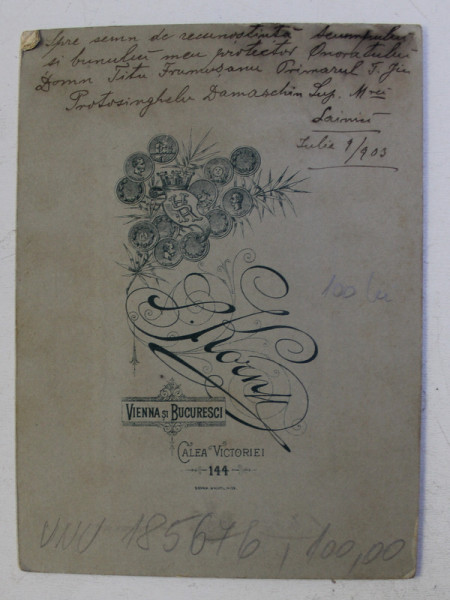 Spre semn de recunostință scumpului
si bunului meu protector Onoratului
Domn Titu Frumușanu Primarul T. Jiu
Protosinghelu Damaschin Sup. M-rei
Lainici
Iulie 9/903
J. Korn
VIENNA ȘI BUCURESCI
CALEA VICTORIEI
144
100 lei
VNU 185676, 100,00